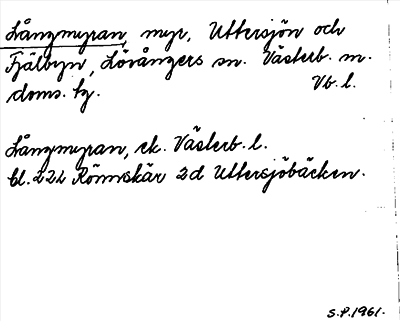 Långmyran, myr, Uttersjön och
Fjälbyn, Lövångers sn. Västerb. m.
doms. tg. Vb. l.
Långmyran, ek. Västerb. l.
bl. 222 Rönnskär 2d Uttersjöbäcken.
S.P. 1961.